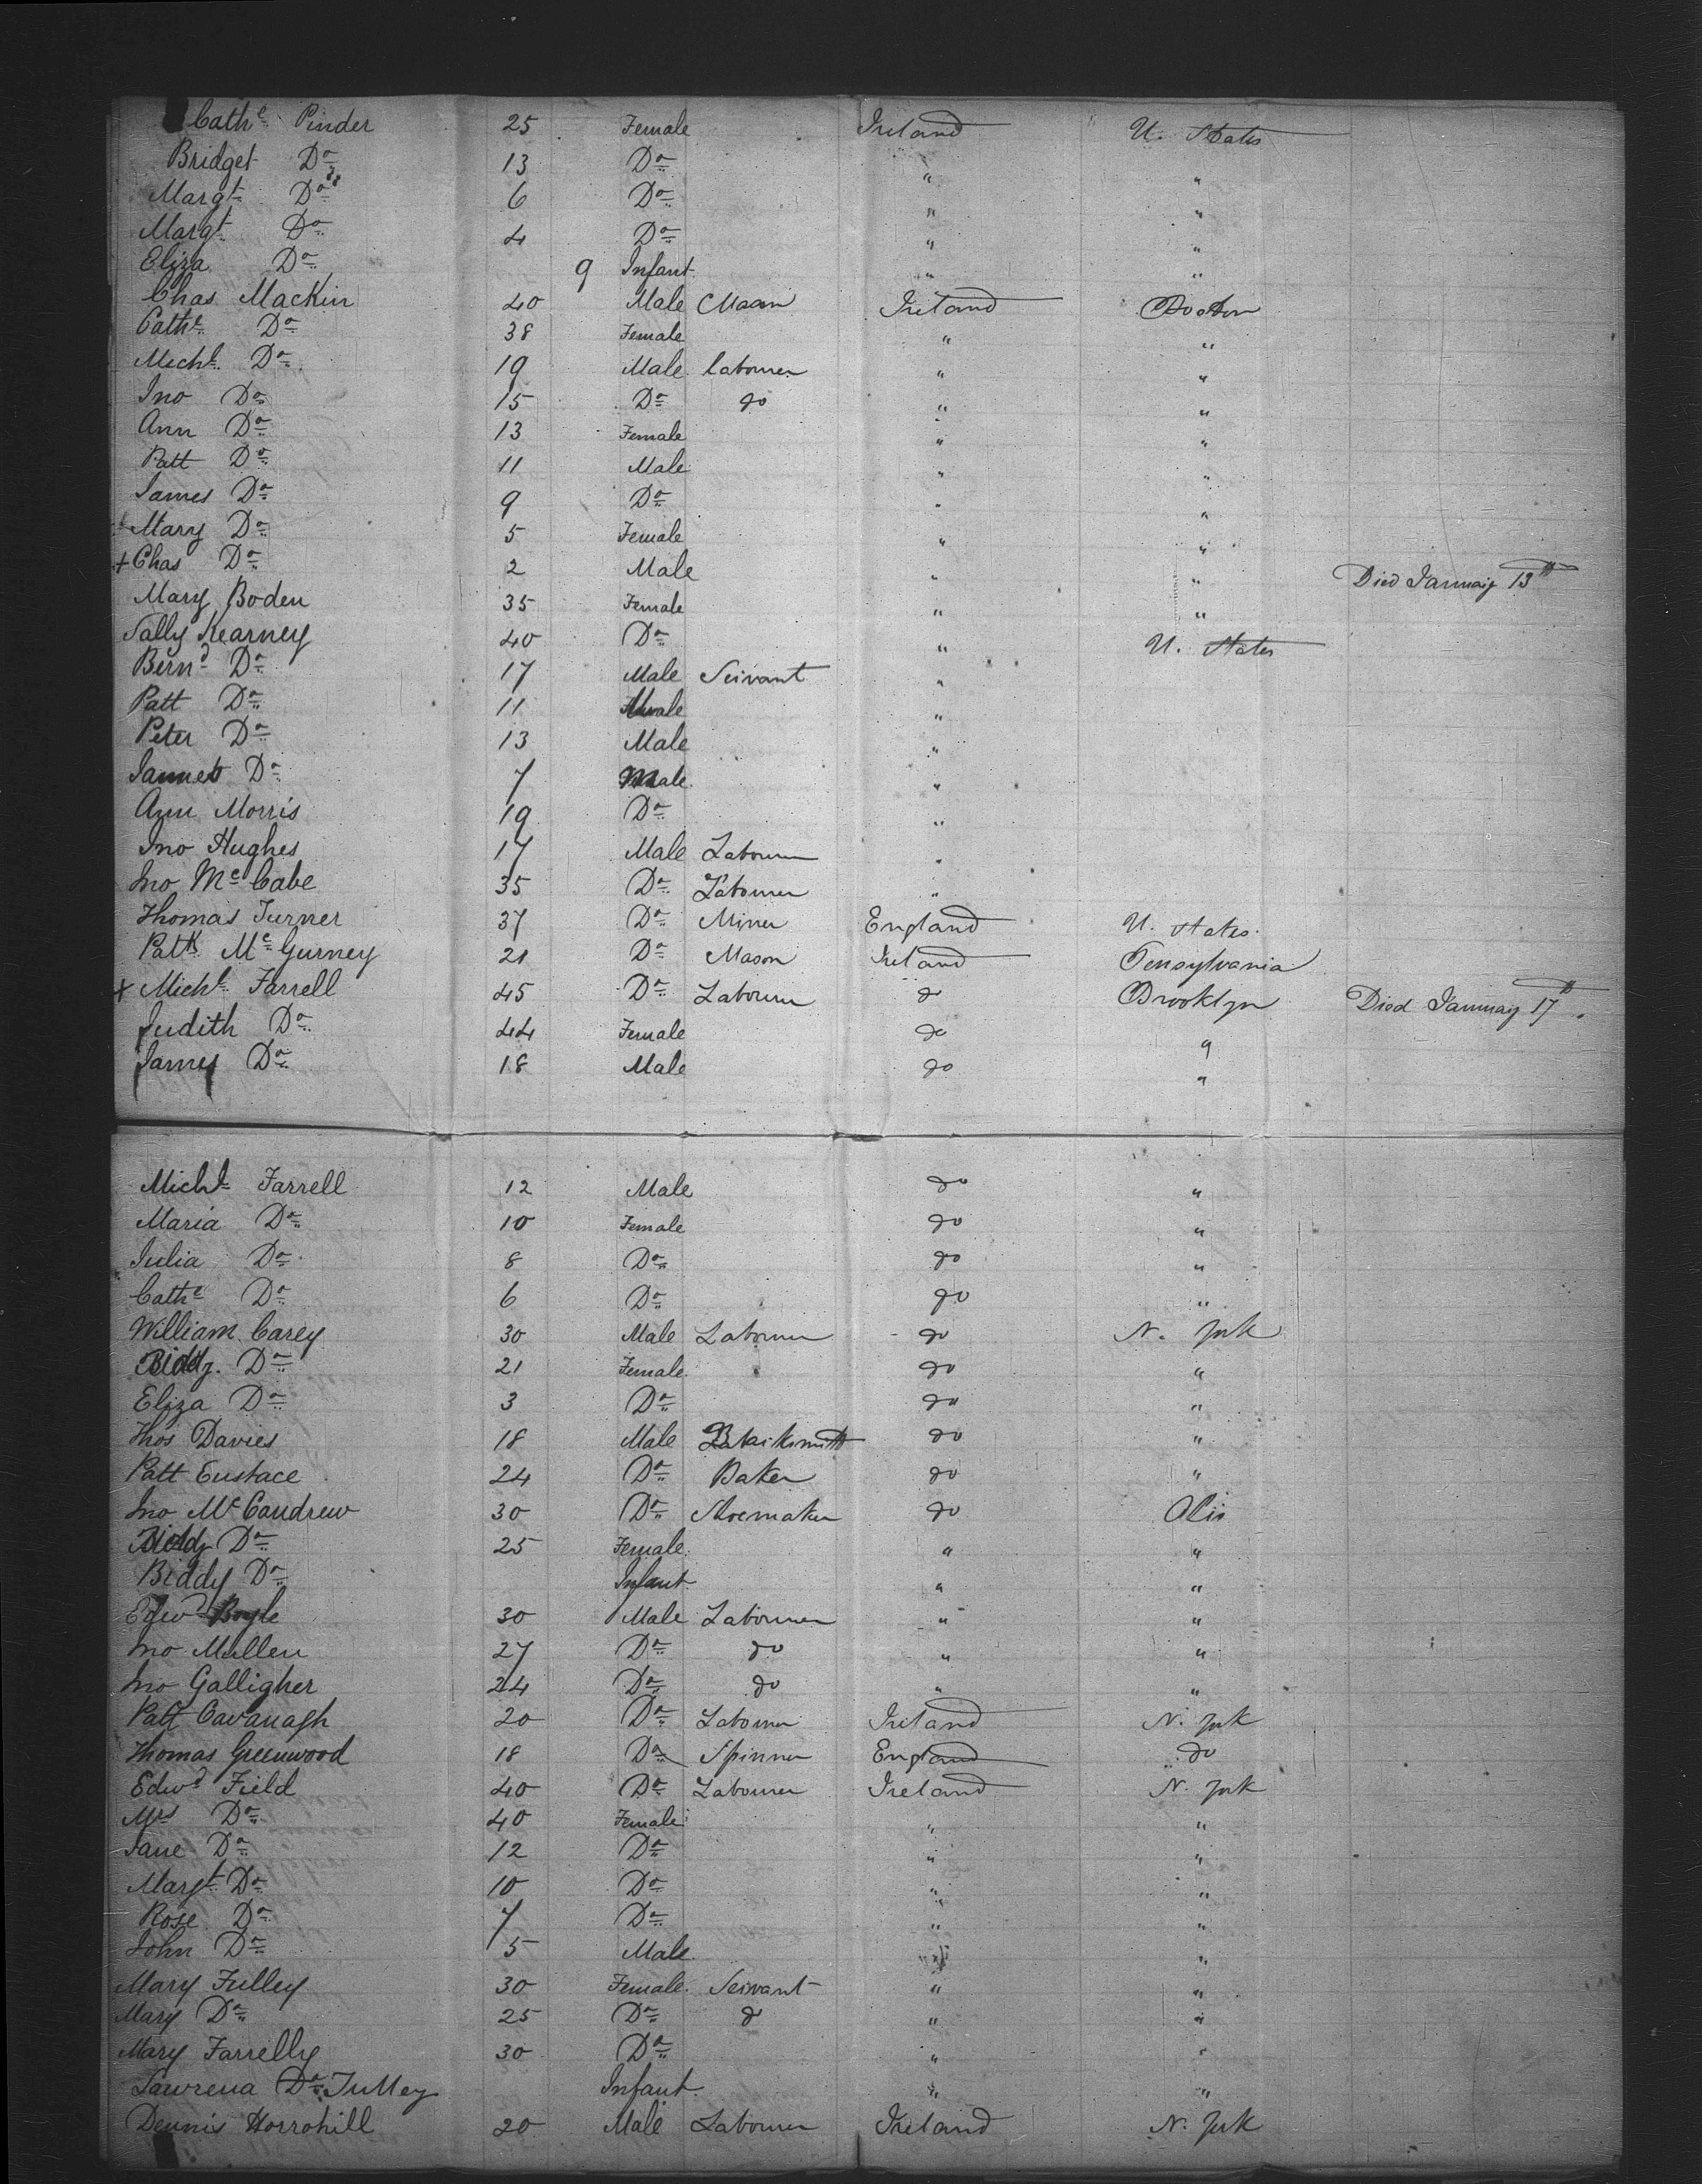 Cathe Pinder 25 Female Ireland U. States
Bridget Do 13 Do " "
Margt Do 6 Do " "
Margt Do 4 Do " "
Eliza Do 9 Infant " "
Chas Mackin 40 Male Ireland Boston
Cathe Do 38 Female " "
Michl Do 19 Male labourer " "
Jno Do 15 Do do " "
Ann Do 13 Female " "
Patt Do 11 Male " "
James Do 9 Do " "
Mary Do 5 Female " "
+ Chas Do 2 Male " " Died January 13th
Mary Boden 35 Female " "
Sally Kearney 40 Do " U. States
Bernd Do 17 Male Servant "
Patt Do 11 Male "
Peter Do 13 Male "
James Do 7 Male "
Ann Morris 19 Do "
Jno Hughes 17 Male Labourer "
Jno McCabe 35 Do Labourer "
Thomas Turner 37 Do Miner England U. States
Pattk McGurney 21 Do Mason Ireland Pensylvania
+ Michl Farrell 45 Do Labourer do Brooklyn Died January 17th
Judith Do 44 Female do "
James Do 18 Male do "
Michl Farrell 12 Male do "
Maria Do 10 Female do "
Julia Do 8 Do do "
Cathe Do 6 Do do "
William Carey 30 Male Labourer do N. York
Biddy Do 21 Female do "
Eliza Do 3 Do do "
Thos Davies 18 Male Blacksmith do "
Patt Eustace 24 Do Baker do "
Jno McCandrew 30 Do Shoemaker do
Biddy Do 25 Female " "
Biddy Do Infant " "
Edwd Boyle 30 Male Labourer " "
Jno Mullen 27 Do do " "
Jno Galligher 24 Do do " "
Patt Cavanagh 20 Do Labourer Ireland N. York
Thomas Greenwood 18 Do Spinner England do
Edwd Field 40 Do Labourer Ireland N. York
Mrs Do 40 Female " "
Jane Do 12 Do " "
Margt Do 10 Do " "
Rose Do 7 Do " "
John Do 5 Male " "
Mary Tulley 30 Female Servant " "
Mary Do 25 Do do " "
Mary Farrelly 30 Do " "
Do Tulley Infant " "
Dennis Horrohill 20 Male Labourer Ireland N. York